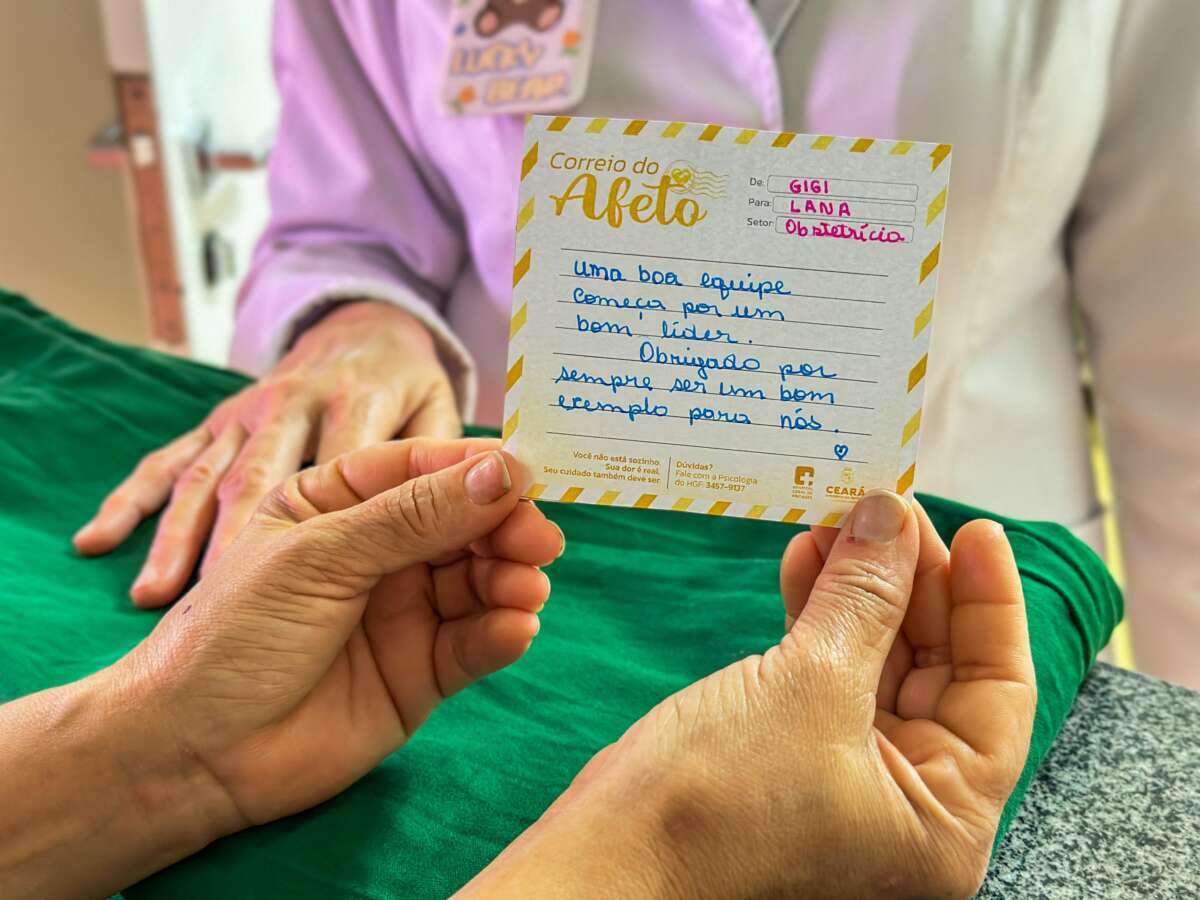 LUCKY
BEAR
Correio do
Afeto
De: GIGI
Para: LANA
Setor: Obstetrícia
uma boa equipe
começa por um
bom líder.
Obrigado por
sempre ser um bom
exemplo para nós.
Você não está sozinho.
Sua dor é real.
Seu cuidado também deve ser.
Dúvidas?
Fale com a Psicologia
do HGF: 3457-9137
CEARÁ